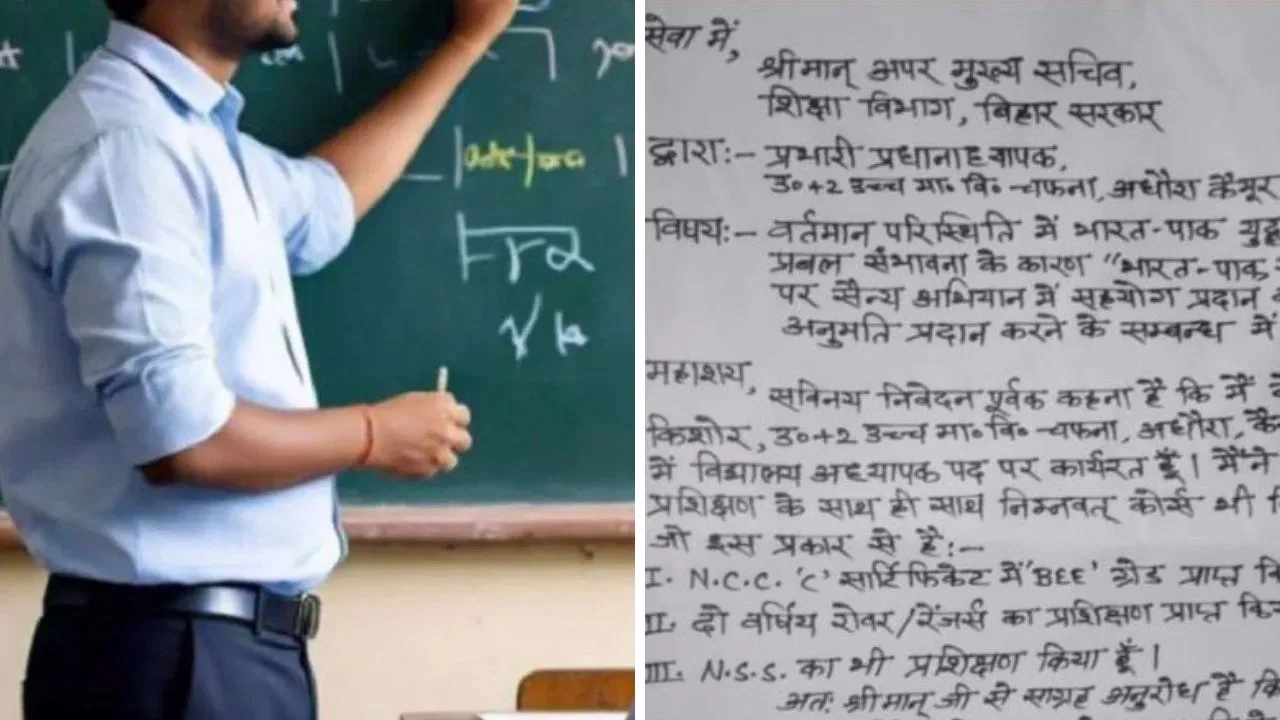 सेवा में,
श्रीमान् अपर मुख्य सचिव,
शिक्षा विभाग, बिहार सरकार
द्वारा:- प्रभारी प्रधानाध्यापक,
उ०+2 उच्च मा० वि० चफना, अधौरा कैमूर
विषय:- वर्तमान परिस्थिति में भारत-पाक युद्ध
प्रबल संभावना के कारण "भारत-पाक
पर सैन्य अभियान में सहयोग प्रदान
अनुमति प्रदान करने के सम्बन्ध में
महाशय,
सविनय निवेदन पूर्वक कहना है कि मैं
किशोर, उ०+2 उच्च मा० वि० चफना, अधौरा,
में विद्यालय अध्यापक पद पर कार्यरत हूँ। मैंने
प्रशिक्षण के साथ ही साथ निम्नवत् कोर्स भी
जो इस प्रकार से है:-
I. N.C.C. 'C' सार्टिफिकेट में 'BEE' ग्रेड प्राप्त
II. दो वर्षिय रोवर/रेंजर्स का प्रशिक्षण प्राप्त
III. N.S.S. का भी प्रशिक्षण किया हूँ।
अतः श्रीमान् जी से साग्रह अनुरोध है कि